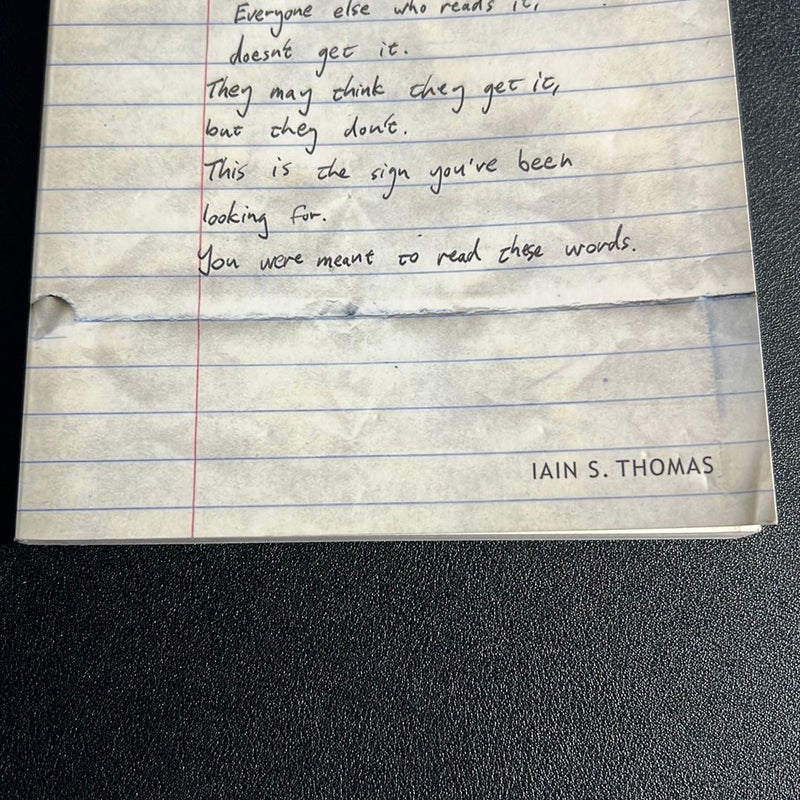 Everyone else who reads it,
doesn't get it.
They may think they get it,
but they don't.
This is the sign you've been
looking for.
You were meant to read these words.
IAIN S. THOMAS